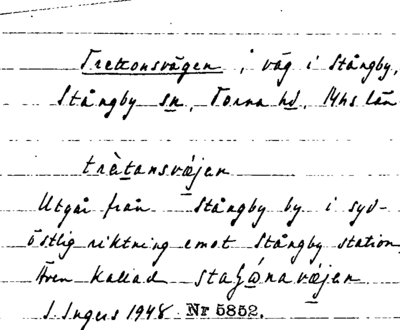 Trettonsvägen, väg i Stångby,
Stångby sn, Torna hd, Mhs län
trètansvæjen
Utgår från Stångby by i syd-
östlig riktning emot Stångby station,
Även kallad
I. Ingers 1948 Nr 5852.